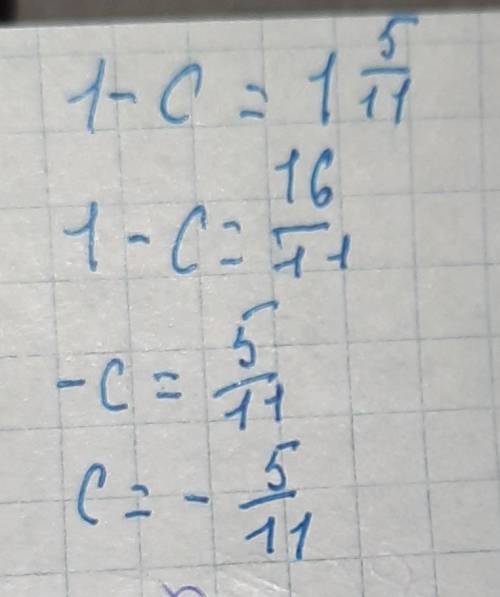 1 - c = 1 5/11
1 - c = 16/11
- c = 5/11
c = - 5/11